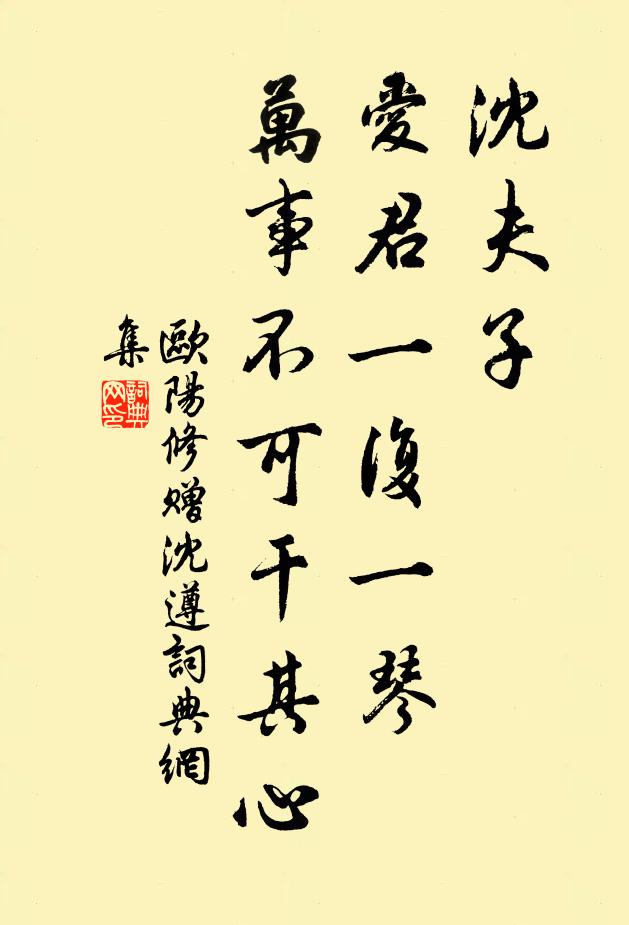 沈夫子
愛君一復一琴
萬事不可干其心
歐陽修贈沈遵詞典網
集
詞典
网印